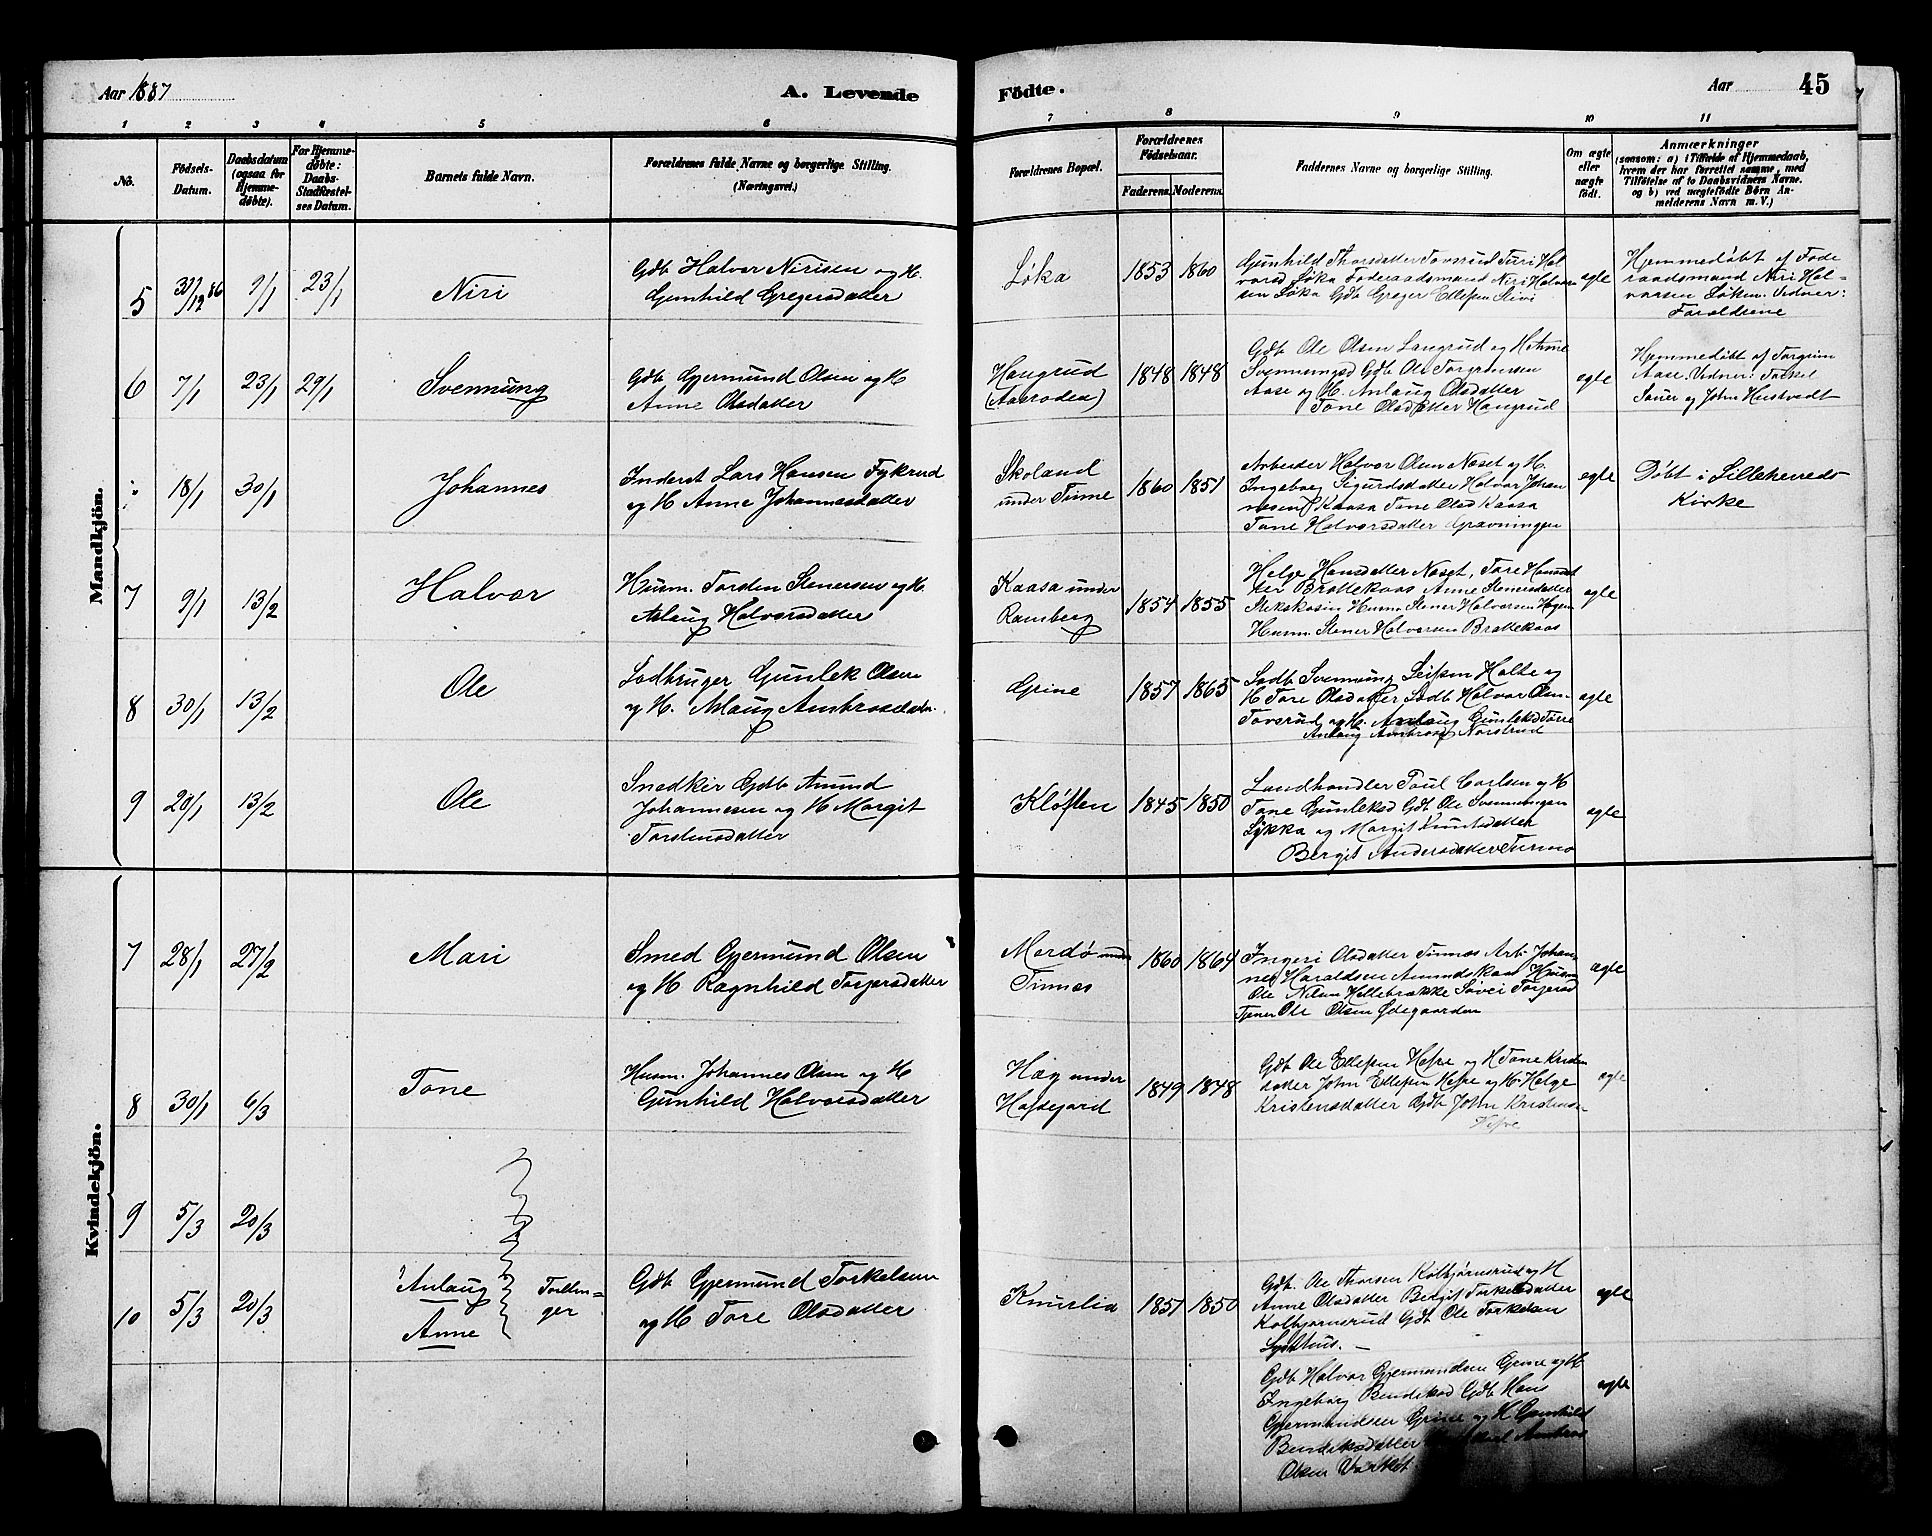 Aar 1887
A. Levende
Födte.
Aar
45
1 2 3 4 5 6 7 8 9 10 11
No.
Födsels-
Datum.
Daabsdatum
(ogsaa for
Hjemme-
döbte).
For Hjemme-
döbte:
Daabs-
Stadfæstel-
ses Datum.
Barnets fulde Navn.
Forældrenes fulde Navne og borgerlige Stilling.
(Næringsvei.)
Forældrenes Bopæl.
Forældrenes
Födselsaar.
Faderens. Moderens.
Faddernes Navne og borgerlige Stilling.
Om ægte
eller
uægte
födt.
Anmærkninger
(saasom: a) i Tilfælde af Hjemmedaab,
hvem der har forrettet samme, med
Tilföielse af to Daabsvidners Navne,
og b) ved uægtefödte Börn An-
melderens Navn m. V.)
Mandkjön.
5 31/12 86 9/1 23/1
Niri
Gdb Halvor Nirisen og H.
Gunhild Gregersdatter
Løka
1853 1860
Gunhild Thorsdatter Tovsrud Turi Hal
vorsd Løka Føderaadsmand Niri Halvors
sen Løka Gdb Greger Ellefsen
ægte
Hjemmedøbt af Føde
raadsmand Niri Hal-
vorsen Løken. Vidner:
Forældrene
6 7/1 23/1 29/1
Svennung
Gdb. Gjermund Olsen og H
Anne Olsdatter
Haugrud
(Aasroden)
1848 1848
Gdb Ole Olsen Langrud og H Anne
Svennungsd Gdb Ole Torgrimsen
Aase og H. Anlaug Olsdatter
Tone Olsdatter Haugrud
ægte
Hjemmedøbt af Torgrim
Aase. Vidner: Torkel
Sauer og John Hustvedt
18/1 30/1
Johannes
Inderst Lars Hansen Fykerud
og H Anne Johannesdatter
Skoland
under Tinne
1860 1851
Arbeider Halvor Olsen Næset og H.
Ingeborg Sigurdsdatter Halvor Johan
nesen Kaasa Tone Olsd Kaasa
Tone Halvorsdatter Gravningen
ægte
Døbt i Lilleherreds
Kirke
7 9/1 13/2
Halvor
Husm. Torsten Stenersen og H.
Aslaug Halvorsdatter
Kaasa under
Ramberg
1854 1855
Helge Hansdatter Næset, Tore Hansdat
ter Brattekaas Anne Stenersdatter
Husm Stener Halvorsen
Husm. Stener Halvorsen Brattekaas
ægte
8 30/1 13/2
Ole
Lodbruger Gunlek Olsen
og H. Aslaug Ambrosdatr.
Grine
1857 1865
Lodb Svennung Leifsen Holte og
H Tore Olsdatter Lodb Halvor Olsen
Tovsrud og H. Anlaug Gunleksd Tone
Anlaug Ambrosd Norstrud
ægte
9 20/1 13/2
Ole
Snedker Gdb Amund
Johannesen og H Margit
Torstensdatter
Kløften
1845 1850
Landhandler Poul Carlsen og H
Tone Gunleksd Gdb Ole Svennungsen
Lykka og Margit Knutsdatter
Bergit Andersdatter Turmo
ægte
Kvindekjön.
7 28/1 27/2
Mari
Smed Gjermund Olsen
og H Ragnhild Torjersdatter
Mordø under
Tinnes
1860 1864
Ingeri Olsdatter Tinnes Arb. Johan-
nes Haraldsen Amundskaas Husm
Ole Nilsen Hellebrække Søvei Torjersd
Tjener Ole Olsen Ødegaarden
ægte
8 30/1 6/3
Tone
Husm. Johannes Olsen og H
Gunhild Halvorsdatter
Hag under
Hafsgard
1849 1848
Gdb Ole Ellefsen Hefre og H Tone Kristen
datter John Ellefsen Hefre og H. Helge
Kristensdatter Gdb John Kristens-
Hefre
ægte
9 5/3 20/3
10 5/3 20/3
Anlaug
Anne
Tvillin-
ger
Gdb Gjermund Torkelsen
og H Tore Olsdatter
Knurlia
1851 1850
Gdb. Ole Thorsen Kolbjørnsrud og H
Anne Olsdatter Bergit Torkelsdatter
Kolbjørnsrud Gdb Ole Torkelsen
Lysthus. –
ægte
Gdb Halvor Gjermundsen Grine og H
Ingeborg Bendiksd Gdb Hans
Gjermundsen Grine og H Gunhild
Bendiksdatter Ambros
Olsen
ægte